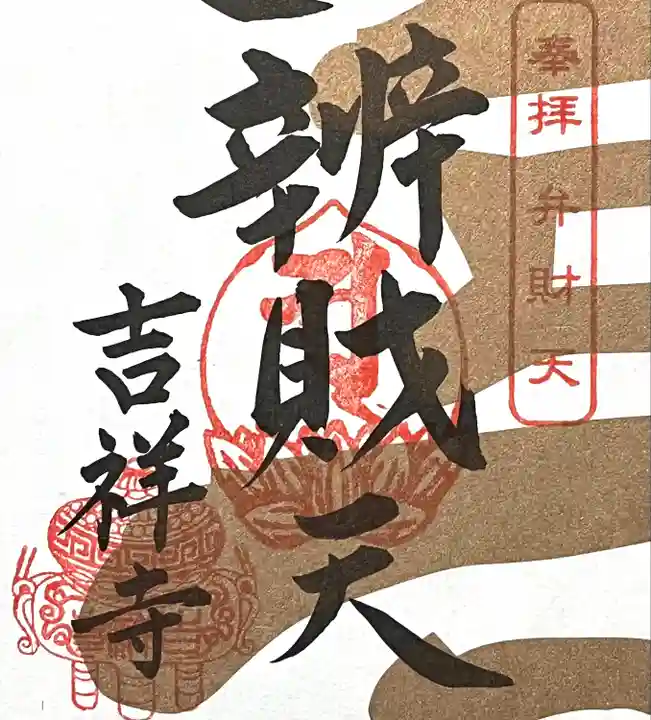 奉拝 弁財天
辨財天
吉祥寺